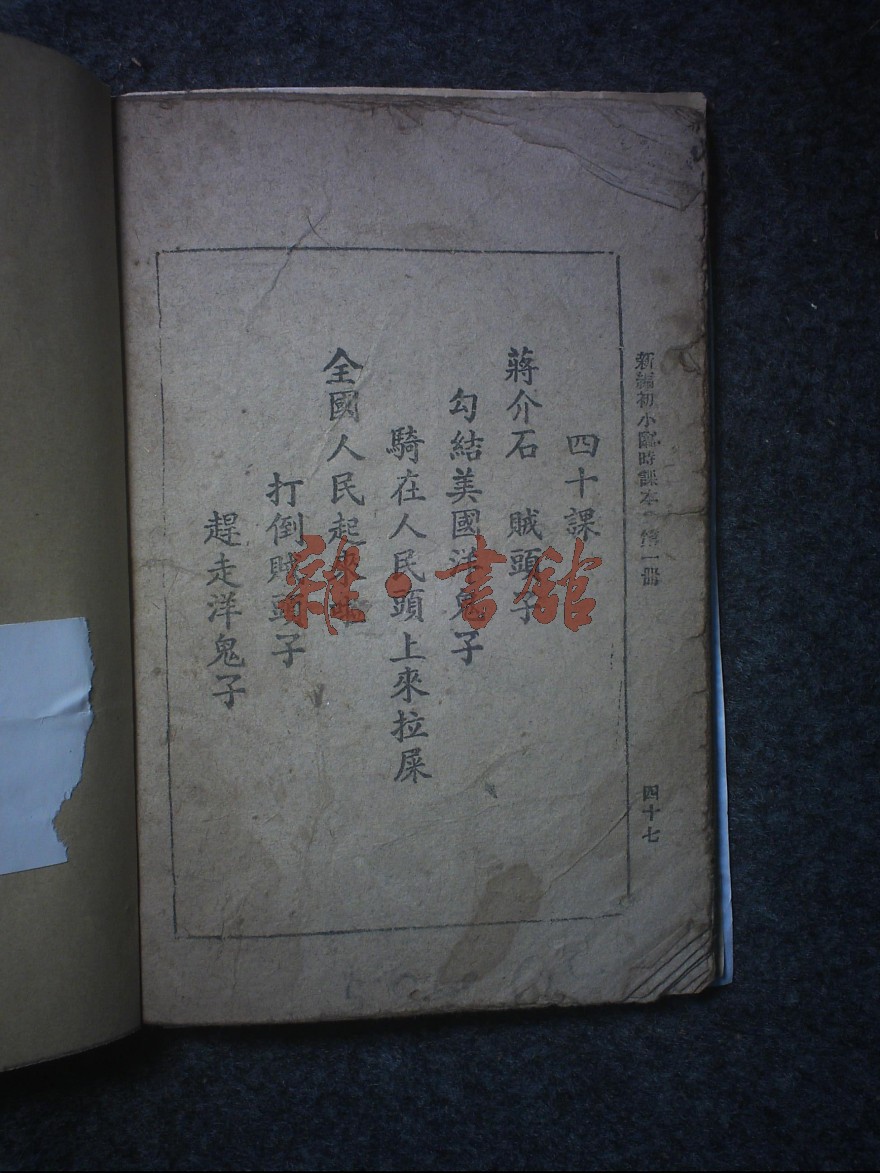 新編初小臨時課本 第一冊
四十七
四十課
蔣介石 賊頭子
勾結美國洋鬼子
騎在人民頭上來拉屎
全國人民起來
打倒賊頭子
趕走洋鬼子
雜·書館